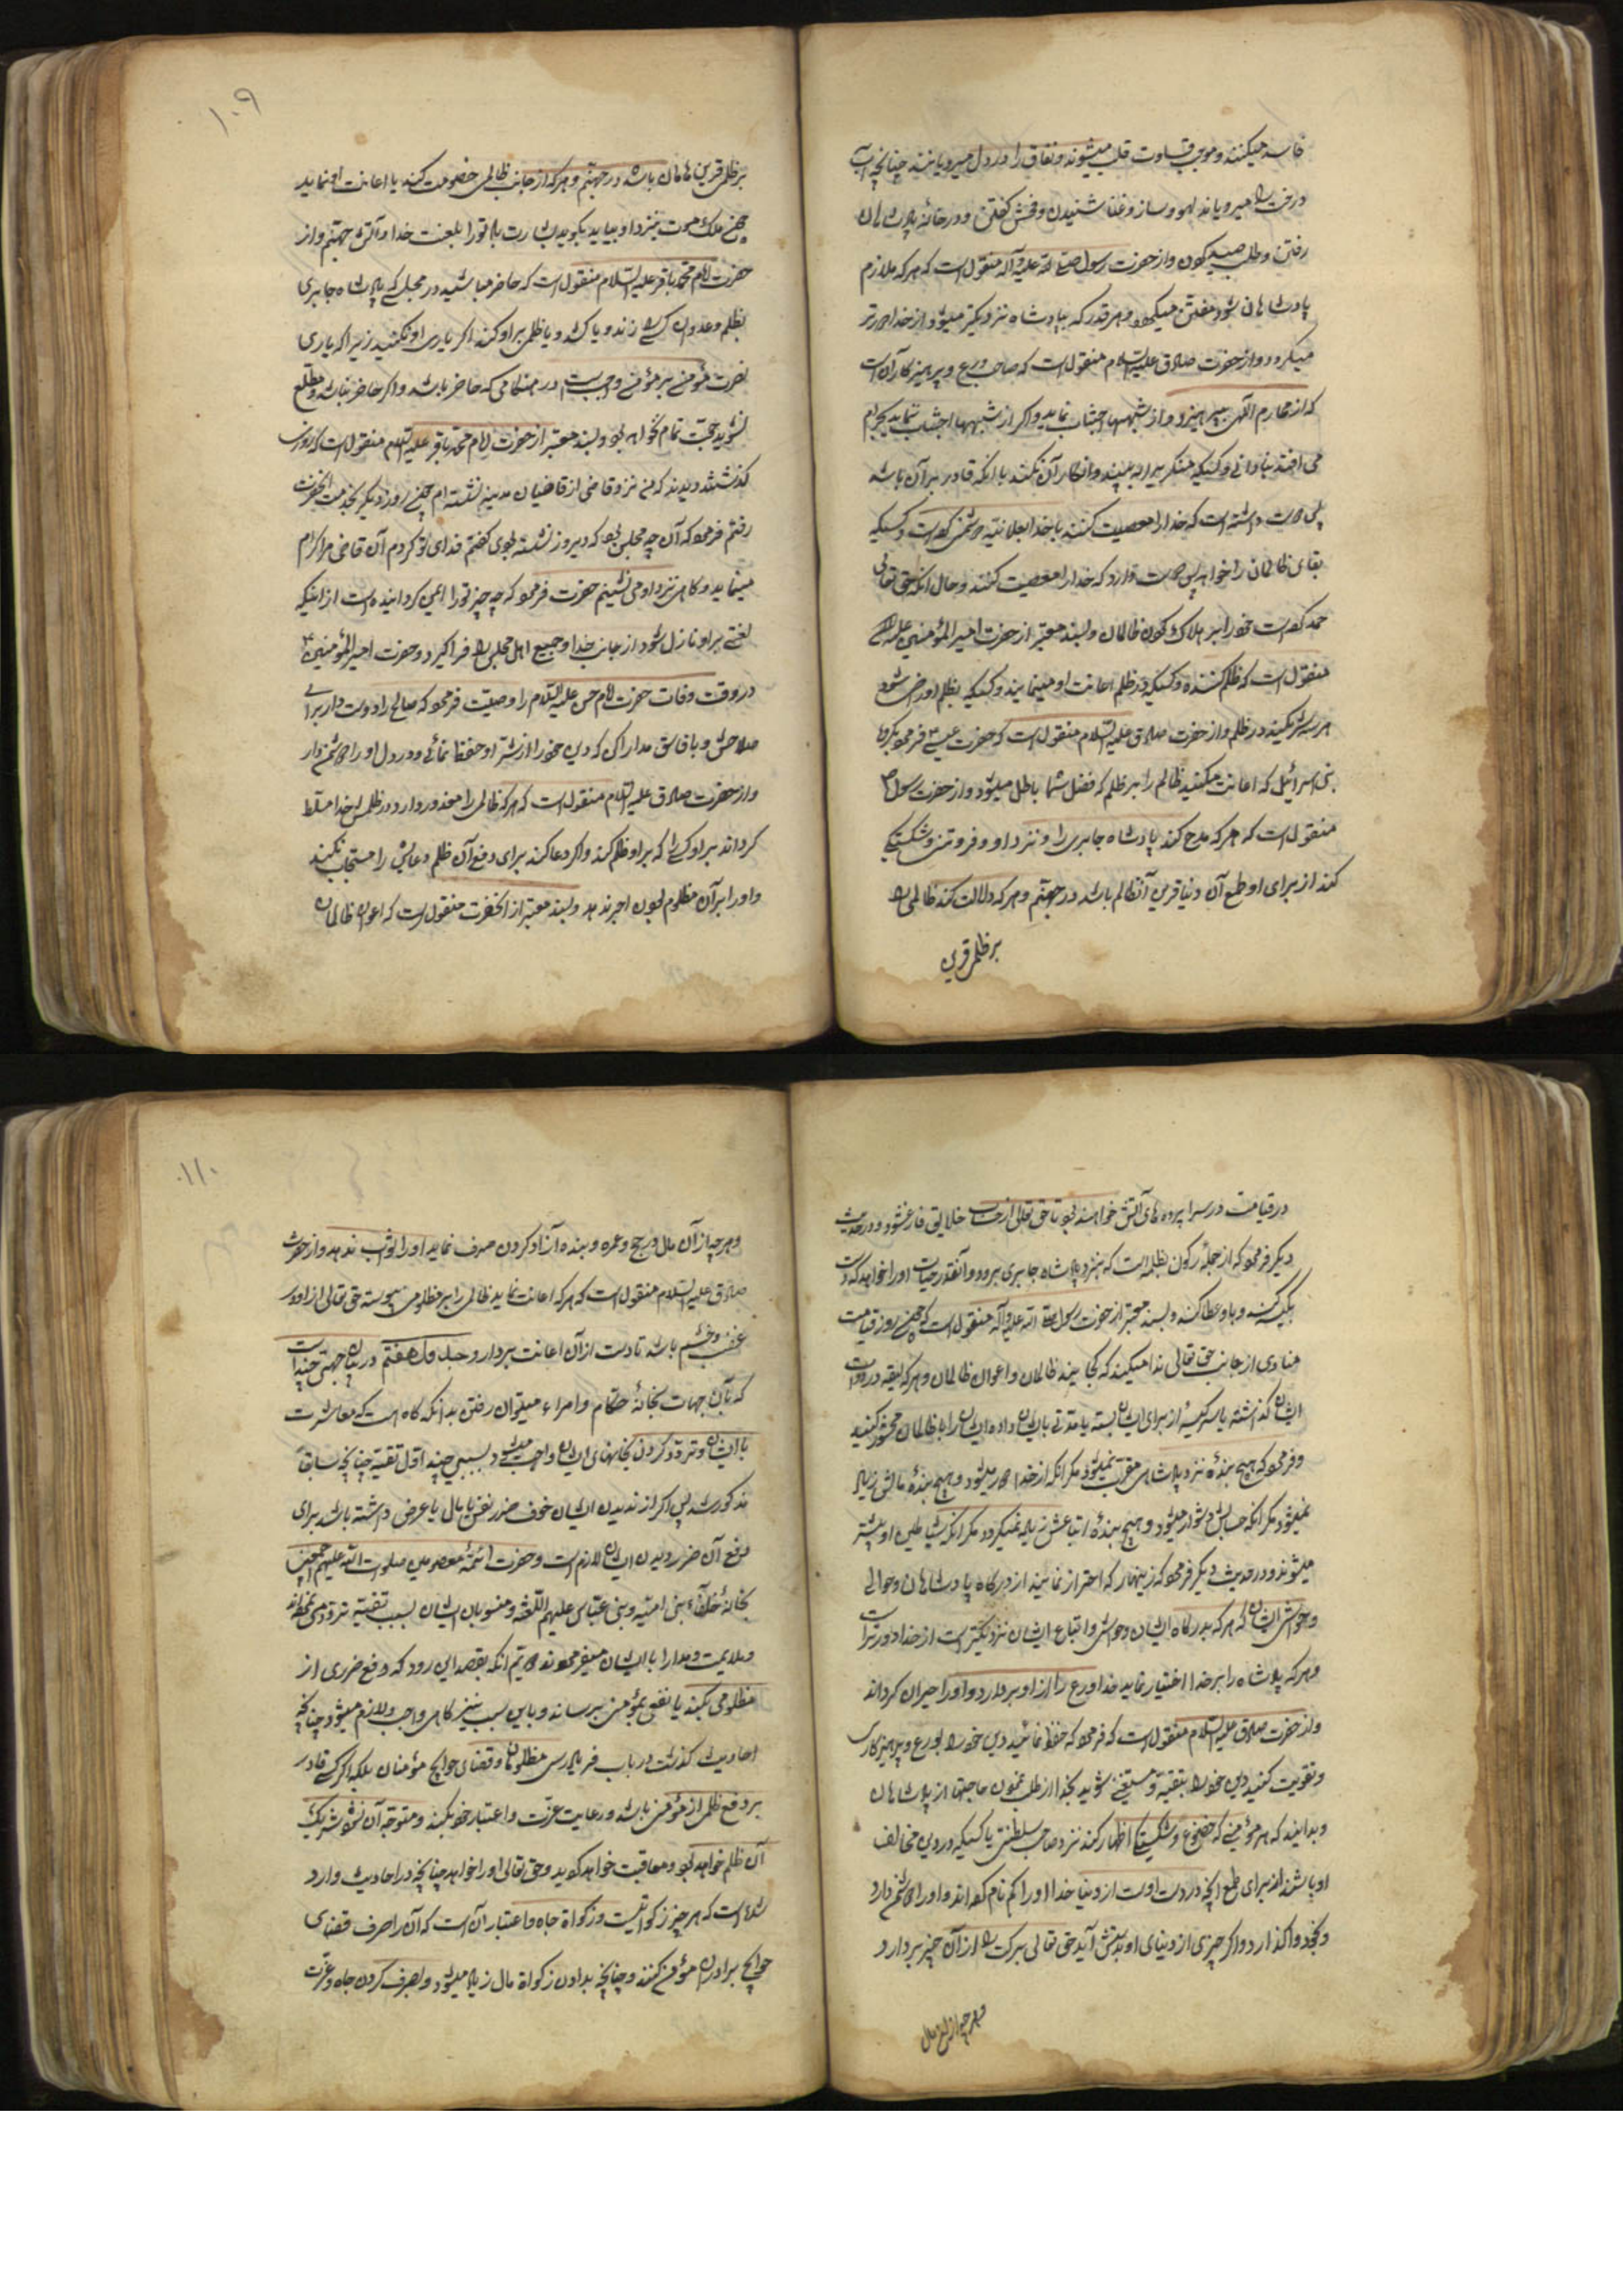 فاسد میکنند و موجب قساوت قلب میشوند و نفاق را در دل میرویانند چنانچه آب
درخت را میرویاند لهو و ساز و غنا شنیدن و فحش گفتن و در خانه پادشاهان
رفتن و طلب صید کردن و از حضرت رسول صلی الله علیه و آله منقول است که هر که ملازم
پادشاهان شود مفتتن میگردد و هر قدر که بپادشاه نزدیکتر میشود از خدا دورتر
میگردد و از حضرت صادق علیه السلام منقول است که صاحب ورع و پرهیزکار آن است
که از محارم الهی بپرهیزد و از شبهها اجتناب نماید و اگر از شبهها اجتناب ننماید بحرام
می افتد بنادانی و کسیکه منکریرا به بیند و انکار آن نکند با آنکه قادر بر آن باشد
پس دوست داشته است که خدا را معصیت کنند با خدا بعلانیه دشمنی کرده است و کسیکه
بقای ظالمان را خواهد پس دوست دارد که خدا را معصیت کنند و حال آنکه حق تعالی
حمد کرده است خود را بر هلاک کردن ظالمان و بسند معتبر از حضرت امیرالمؤمنین علیه السلام
منقول است که ظلم کننده و کسیکه در ظلم اعانت او مینماید و کسیکه بظلم او راضی شود
هر سه شریکند در ظلم و از حضرت صادق علیه السلام منقول است که حضرت عیسی ع فرمود بگروه
بنی اسرائیل که اعانت مکنید ظالم را بر ظلم که فضل شما باطل میشود و از حضرت رسول ص
منقول است که هر که مدح کند پادشاه جابری را و نزد او فروتنی و شکستگی
کند از برای او طمع آن دنیا قرین آن ظالم باشد در جهنم و هر که دلالت کند ظالمی را
بر ظلمی قرین
۱۰۹
بر ظلمی قرین هامان باشد در جهنم و هر که از جانب ظالمی خصومت کند یا اعانت او نماید
چون ملک موت بنزد او بیاید بگوید بشارت باد تو را بلعنت خدا و آتش جهنم و از
حضرت امام محمد باقر علیه السلام منقول است که حاضر مباشید در مجلسی که پادشاه جابری
بظلم و عدوان کسی را زند و یا کشد و یا ظلمی بر او کند اگر یاری او نکنید زیرا که یاری
نصرت مؤمن بر مؤمن واجب است در هنگامی که حاضر باشد و اگر حاضر نباشد و مطلع
نشوید حجت تمام نخواهد بود و بسند معتبر از حضرت امام محمد باقر علیه السلام منقول است که روزی
گذشتند و دیدند که من نزد قاضی از قاضیان مدینه نشسته ام چون روز دیگر بخدمت آنحضرت
رفتم فرمود که آن چه مجلس بود که دیروز نشسته بودی گفتم فدای تو گردم آن قاضی مرا اکرام
مینماید و گاهی نزد او می نشینم حضرت فرمود که چه چیز تو را ایمن گردانیده است از اینکه
لعنتی بر او نازل شود از جانب خدا و جمیع اهل مجلس را فرا گیرد و حضرت امیرالمؤمنین ع
در وقت وفات حضرت امام حسن علیه السلام را وصیت فرمود که صالح را دوست دار برای
صلاحش و با فاسق مدارا کن که دین خود را از شر او حفظ نمائی و در دل او را دشمن دار
و از حضرت صادق علیه السلام منقول است که هر که ظالمی را معذور دارد در ظلمش خدا مسلط
گرداند بر او کسی را که بر او ظلم کند و اگر دعا کند برای دفع آن ظلم دعایش را مستجاب نکند
و او را بر آن مظلوم بودن اجر ندهد و بسند معتبر از آنحضرت منقول است که اعوان ظالمان
در قیامت در سراپرده های آتش خواهند بود تا حق تعالی از حساب خلایق فارغ شود و در حدیث
دیگر فرمود که از جمله رکون بظلمه است که بنزد پادشاه جابری برود و آنقدر حیات او را خواهد که دست
بکیسه کند و باو عطا کند و بسند معتبر از حضرت رسول صلی الله علیه و آله منقول است که چون روز قیامت
منادی از جانب حق تعالی ندا میکند که کجایند ظالمان و اعوان ظالمان و هر که لیقه در دوات
ایشان گذاشته یا سر کیسه از برای ایشان بسته یا مدتی بایشان داده ایشان را با ظالمان محشور کنید
و فرمود که هیچ بنده نزد پادشاهی مقرب نمیشود مگر آنکه از خدا دور میشود و هیچ بنده مالش زیاد
نمیشود مگر آنکه حسابش دشوار میشود و هیچ بنده اتباعش زیاد نمیگردد مگر آنکه شیاطین او بیشتر
میشوند و در حدیث دیگر فرمود که زینهار که احتراز نمائید از درگاه پادشاهان و حوالی
و حواشی ایشان که هر که بدرگاه ایشان و حواشی و اتباع ایشان نزدیکتر است از خدا دورتر است
و هر که پادشاه را بر خدا اختیار نماید خدا ورع را از او بردارد و او را حیران گرداند
و از حضرت صادق علیه السلام منقول است که فرمود که حفظ نمائید دین خود را بورع و پرهیزکاری
و تقویت کنید دین خود را بتقیه و مستغنی شوید بخدا از طلب نمودن حاجتها از پادشاهان
و بدانید که هر مؤمنی که خضوع و شکستگی اظهار کند نزد صاحب سلطنتی یا کسیکه در دین مخالف
او باشد از برای طمع آنچه در دست اوست از دنیا خدا او را گم نام گرداند و او را دشمن دارد
و بخود واگذارد و اگر چیزی از دنیای او بدستش آید حق تعالی برکت را از آن چیز بردارد
و هر چه از این مال
۱۱۰
و هر چه از آن مال در حج و عمره و بنده آزاد کردن صرف نماید او را ثواب ندهد و از حضرت
صادق علیه السلام منقول است که هر که اعانت نماید ظالمی را بر مظلومی پیوسته حق تعالی از او در
غضب و خشم باشد تا دست از آن اعانت بردارد جدول هفتم در بیان جهتی چند است
که بآن جهات بخانه حکام و امراء میتوان رفتن بدانکه گاه است که معاشرت
با ایشان و تردد کردن بخانهای ایشان واجب میشود بسببی چند اول تقیه چنانچه سابقا
مذکور شد پس اگر از ندیدن ایشان خوف ضرر نفس یا مال یا عرض داشته باشد برای
دفع آن ضرر دیدن ایشان لازم است و حضرت ائمه معصومین صلوات الله علیهم اجمعین
بخانه خلفاء بنی امیه و بنی عباس علیهم اللعنة و منسوبان ایشان بسبب تقیه تردد می نموده اند
و ملایمت و مدارا با ایشان میفرمودند دویم آنکه بقصد این رود که دفع ضرری از
مظلومی بکند یا نفعی بمؤمنی برساند و باین سبب نیز گاهی واجب و لازم میشود چنانچه
احادیث گذشت در باب فریادرسی مظلومان و قضای حوایج مؤمنان بلکه اگر کسی قادر
بر دفع ظلم از مؤمنی باشد و رعایت عزت و اعتبار خود بکند و متوجه آن نشود شریک
آن ظلم خواهد بود و معاقبت خواهد گردید و حق تعالی او را خواهد چنانچه در احادیث وارد
شده است که هر چیز زکواتیست و زکواة جاه و اعتبار آن است که آن را صرف قضای
حوایج برادران مؤمن کنند و چنانچه بدادن زکواة مال زیاد میشود و بصرف کردن جاه و عزت